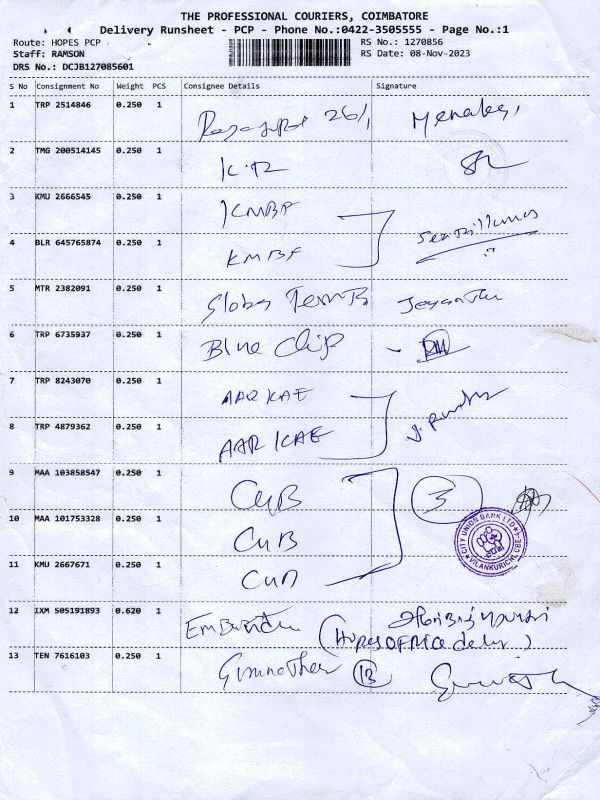 THE PROFESSIONAL COURIERS, COIMBATORE
Delivery Runsheet - PCP - Phone No.:0422-3505555 - Page No.:1
Route: HOPES PCP RS No.: 1270856
Staff: RAMSON RS Date: 08-Nov-2023
DRS No.: DCJB127085601
S No Consignment No Weight PCS Consignee Details Signature
1 TRP 2514846 0.250 1 26/1
2 TMG 200514145 0.250 1
3 KMU 2666545 0.250 1 KMBF
4 BLR 645765874 0.250 1 KMBF
5 MTR 2382091 0.250 1
6 TRP 6735937 0.250 1 Blue Chip
7 TRP 8243070 0.250 1 AAR KAE
8 TRP 4879362 0.250 1 AAR KAE
9 MAA 103858547 0.250 1 CUB 3
10 MAA 101753328 0.250 1 CUB
CITY UNION BANK LTD
VILANKURICHI, CBE-4
11 KMU 2667671 0.250 1 CUB
12 IXM 505191893 0.620 1
13 TEN 7616103 0.250 1 13